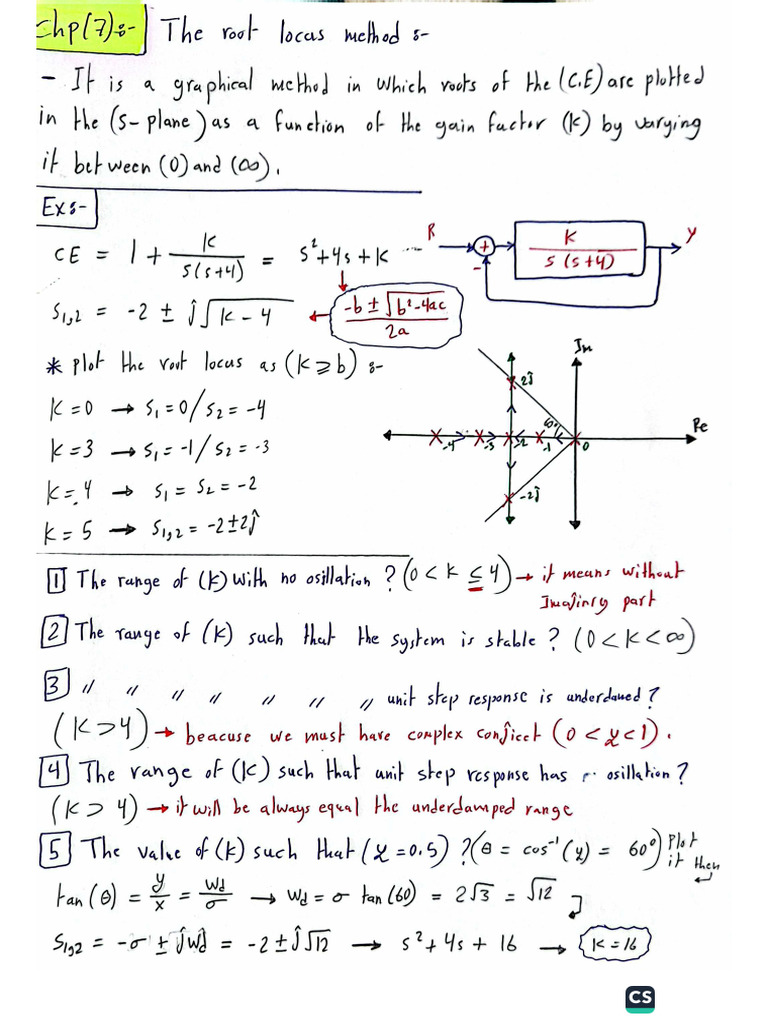 Chp(7):- The root locus method :-
- It is a graphical method in which roots of the (C.E) are plotted
in the (S-plane) as a function of the gain factor (k) by varying
it between (0) and (∞).
Ex:-
CE = 1 + k / s(s+4) = s²+4s+k
R + - k / s(s+4) Y
S₁,₂ = -2 ± ĵ√k-4 ← -b ± √b²-4ac / 2a
* plot the root locus as (k ⩾ b) :-
k=0 → s₁=0/s₂=-4
k=3 → s₁=-1/s₂=-3
k=4 → s₁=s₂=-2
k=5 → s₁,₂=-2±2ĵ
Im
2ĵ
60°
-4 -3 -2 -1 0 Re
-2ĵ
1 The range of (k) with no osillation ? (0<k≤4) → it means without
Imajinry part
2 The range of (k) such that the system is stable ? (0<k<∞)
3 〃 〃 〃 〃 〃 〃 〃 unit step response is underdamed ?
(k>4) → beacuse we must have complex conjicct (0<ζ<1).
4 The range of (k) such that unit step response has osillation ?
(k>4) → it will be always equal the underdamped range
5 The value of (k) such that (ζ=0.5) ? (θ = cos⁻¹(ζ) = 60°) Plot
it then
tan(θ) = y/x = Wd/σ → Wd = σ tan(60) = 2√3 = √12
S₁,₂ = -σ ± ĵWd = -2 ± ĵ√12 → s²+4s+16 → k=16
CS